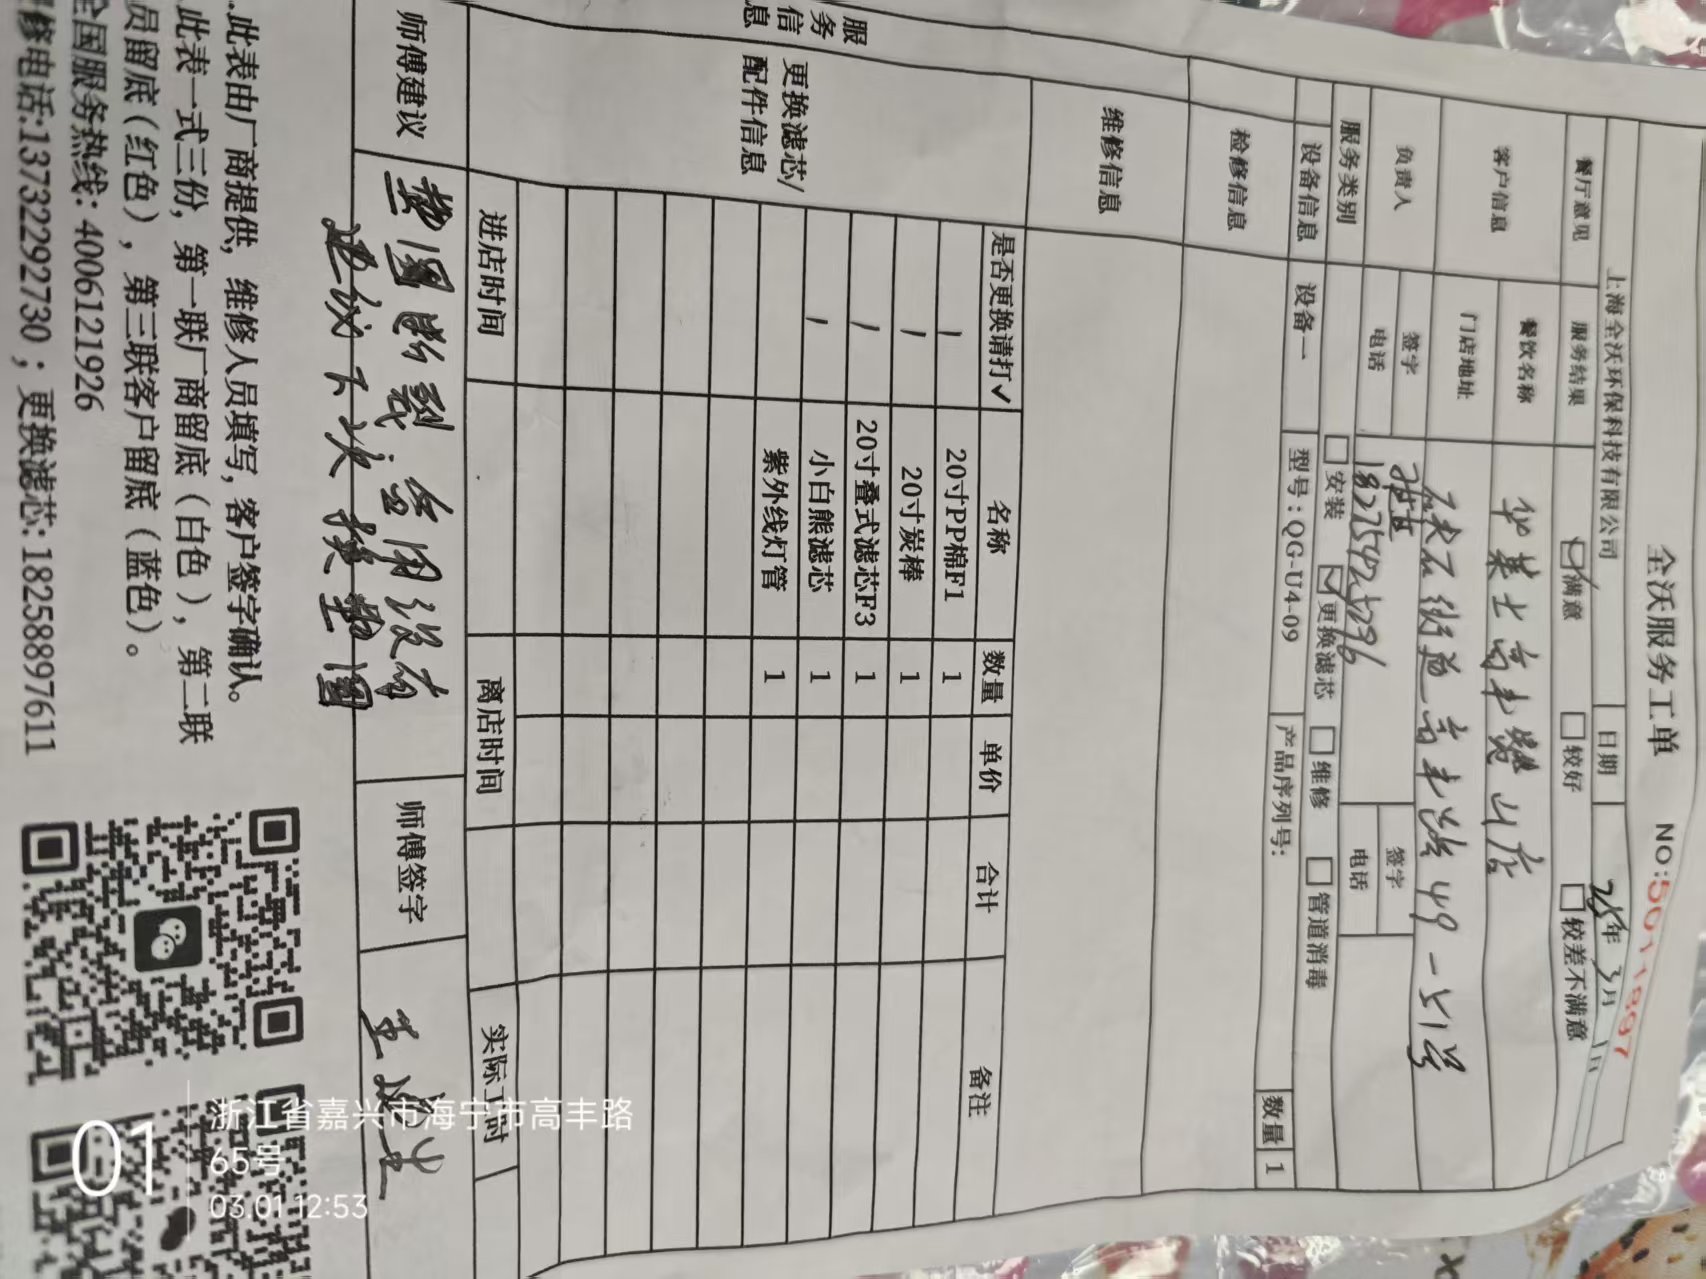 全沃服务工单 NO:5011897
上海全沃环保科技有限公司 日期 25年3月1日
餐厅意见 服务结果 满意 较好 较差不满意
客户信息 餐饮名称 华莱士高丰赞山店
门店地址 硖石街道高丰路49-51号
负责人 签字 签字
电话 电话
服务类别 安装 更换滤芯 维修 管道消毒
设备信息 设备一 型号:QG-U4-09 产品序列号: 数量 1
检修信息
维修信息
服务信息
更换滤芯/配件信息
是否更换请打✓ 名称 数量 单价 合计 备注
/ 20寸PP棉F1 1
/ 20寸炭棒 1
/ 20寸叠式滤芯F3 1
/ 小白熊滤芯 1
紫外线灯管 1
进店时间 离店时间 实际工时
师傅建议 垫圈断裂,备用没有 师傅签字
建议下次换垫圈
.此表由厂商提供,维修人员填写,客户签字确认。
此表一式三份,第一联厂商留底(白色),第二联
员留底(红色),第三联客户留底(蓝色)。
全国服务热线:4006121926
修电话:13732292730;更换滤芯:18258897611
01
浙江省嘉兴市海宁市高丰路
65号
03.01 12:53